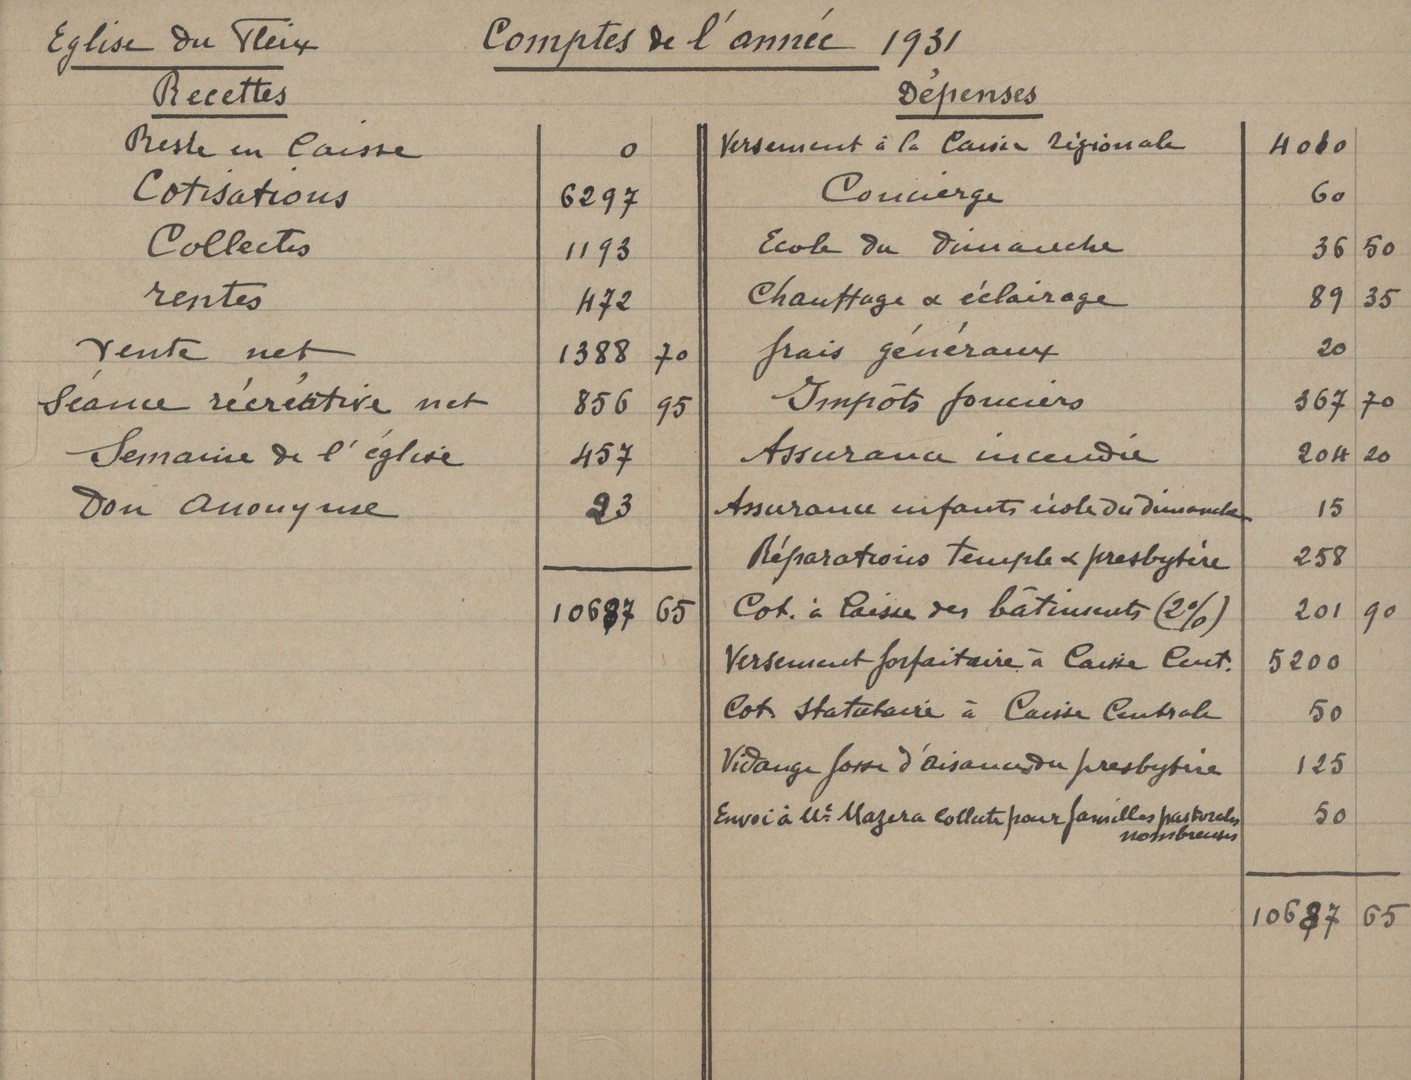 Eglise du Fleix Comptes de l'année 1931
Recettes Dépenses
Reste en Caisse 0 Versement à la Caisse régionale 4010
Cotisations 6297 Concierge 60
Collectes 1193 Ecole du dimanche 36 50
rentes 472 Chauffage & éclairage 89 35
Vente net 1388 70 frais généraux 20
Séance récréative net 856 95 Impôts fonciers 367 70
Semaine de l'église 457 Assurance incendie 204 20
Don anonyme 23 Assurance enfants école du dimanche 15
Réparations temple & presbytère 258
10687 65 Cot. à Caisse des bâtiments (2%) 201 90
Versement forfaitaire à Caisse Cent. 5200
Cot. statutaire à Caisse Centrale 50
Vidange fosse d'aisances du presbytère 125
Envoi à Mr Mazera collecte pour familles pastorales 50
nombreuses
10687 65